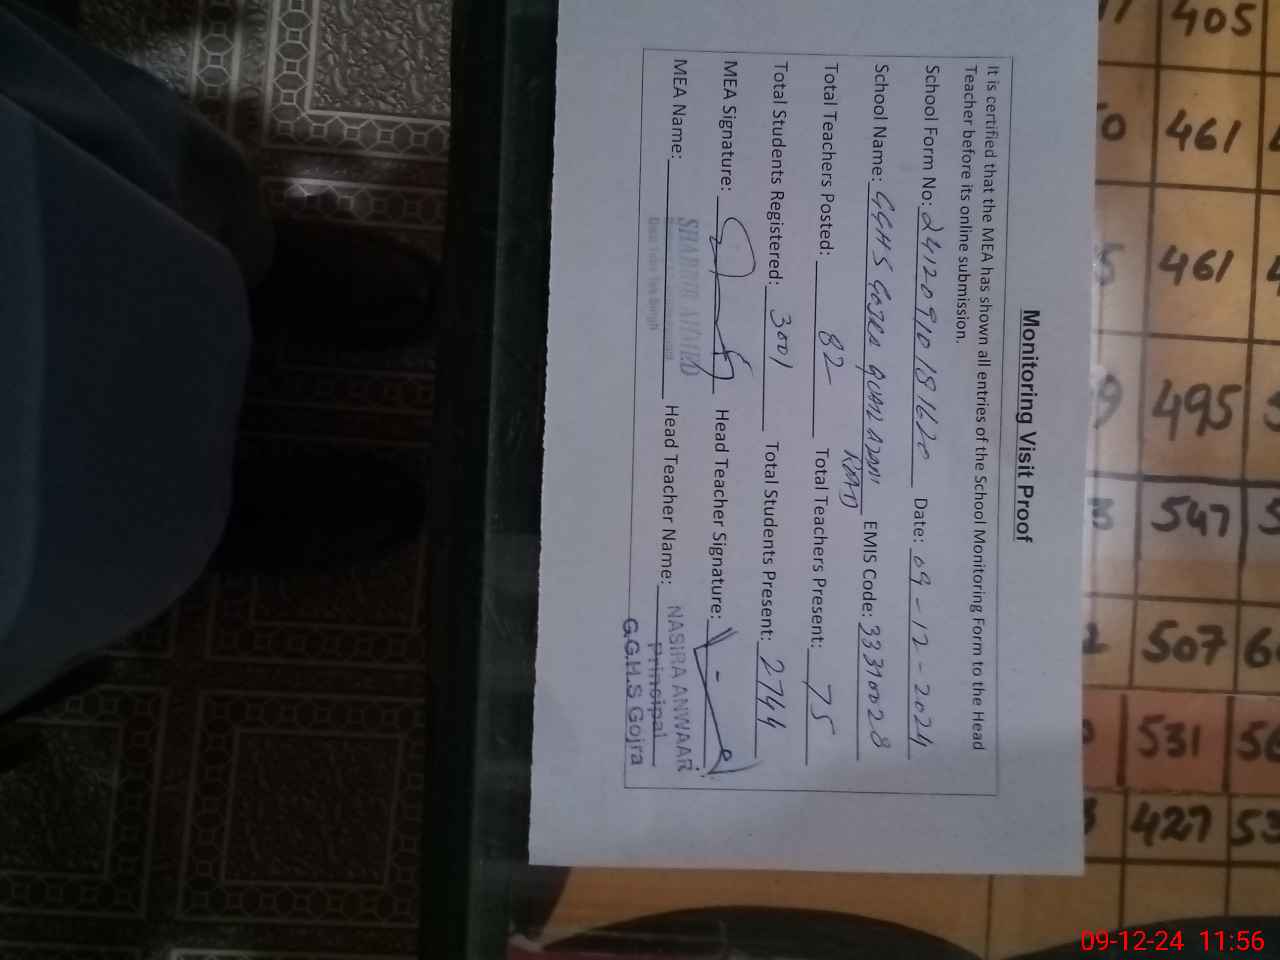 Monitoring Visit Proof
It is certified that the MEA has shown all entries of the School Monitoring Form to the Head
Teacher before its online submission.
School Form No: 24120910181620 Date: 09-12-2024
School Name: GGHS GOJRA QUAID AZAM ROAD EMIS Code: 33310028
Total Teachers Posted: 82 Total Teachers Present: 75
Total Students Registered: 3001 Total Students Present: 2744
MEA Signature: Head Teacher Signature:
MEA Name: SHABBIR AHMED Head Teacher Name: NASIRA ANWAAR
Principal
G.G.H.S Gojra
405
461
461
495
547
507
531
427
09-12-24 11:56